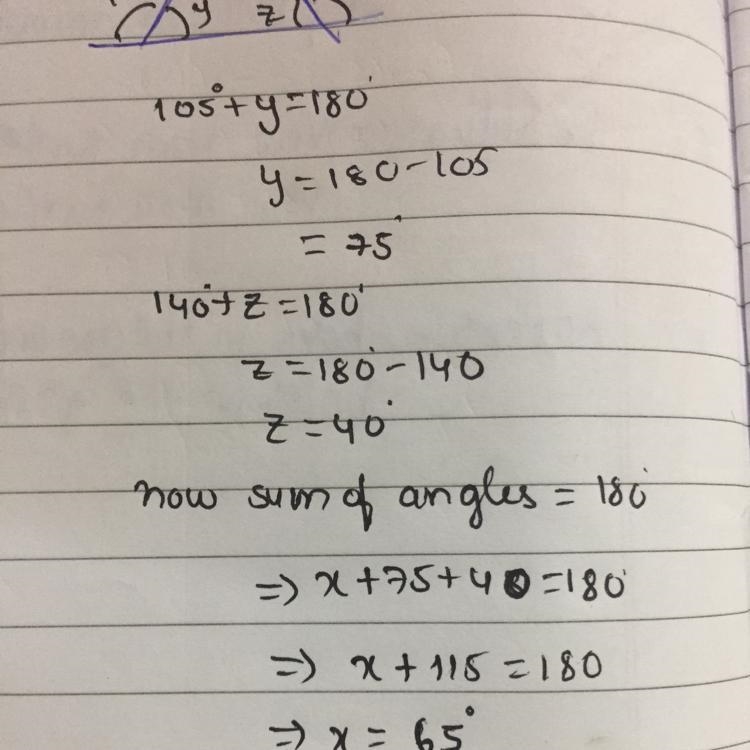 y z
105°+y=180°
y=180-105
=75°
140°+z=180°
z=180°-140
z=40°
now sum of angles = 180°
=> x+75+40=180°
=> x+115=180
=> x = 65°